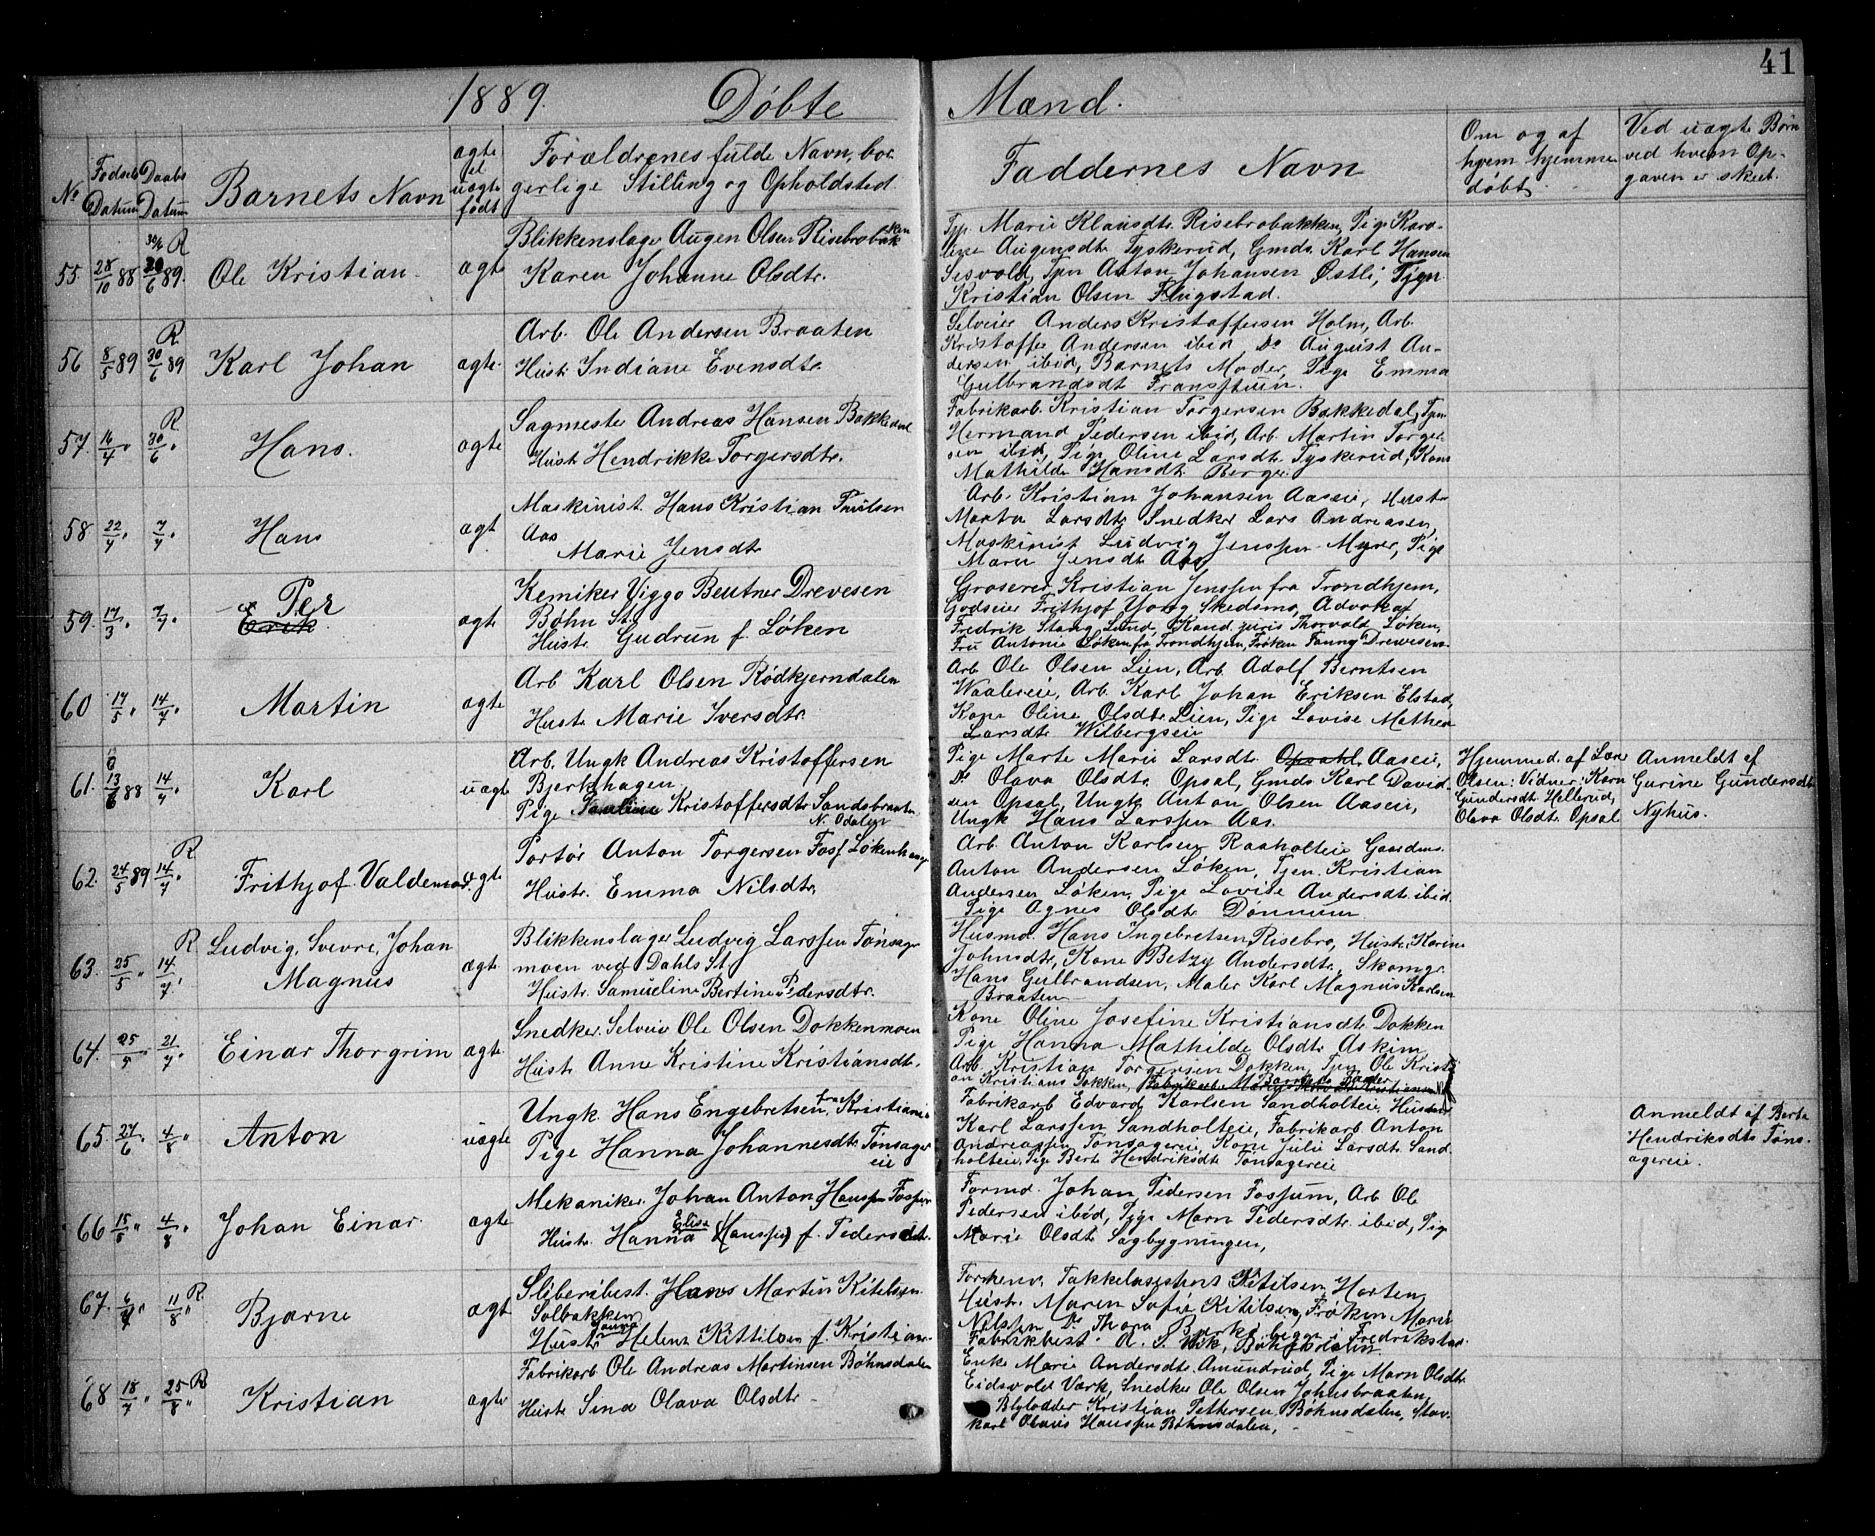 41
1889. Døbte Mænd.
No
Fødsels Datum
Daabs Datum
Barnets Navn
ægte el uægte født
Forældrenes fulde Navn, bor-
gerlige Stilling og Opholdsted
Faddernes Navn
Om og af
hvem hjemme
døbt
Ved uægte Børn
ved hvem Op-
gaven er skeet.
55 28/10 88 30/6 89. R Ole Kristian. ægte
Blikkenslager Augen Olsen Risebrobakken
Karen Johanne Olsdtr.
Marie Klausdtr. Risebrobakken, Pige Karo-
line Augensdtr. Tyskerud, Gmds. Karl Hansen
Sesvold, Tjen Anton Johansen Østli, Tjen.
Kristian Olsen Flugstad.
56 8/5 89 30/6 89 R Karl Johan ægte.
Arb. Ole Andersen Braaten
Hustr. Indiane Evensdtr.
Selveier Anders Kristoffersen Holm, Arb.
Kristoffer Andersen ibid Do August An-
dersen, ibid, Barnets Moder, Pige Emma
Gulbrandsdt
57. 16/4 " 30/6 " R Hans. ægte
Sagmester Andreas Hansen Bakkedal
Hustr Hendrikke Torgersdtr.
Fabrikarb. Kristian Torgersen Bakkedal, Tjen.
Hermand Pedersen ibid, Arb. Martin Torger-
sen ibid, Pige Oline Larsdtr Tyskerud, Kone
Mathilde Hansdtr Berger
58 22/4 " 7/7 " Hans ægt
Maskinist Hans Kristian
Aas
Marie Jensdtr
Arb. Kristian Johansen Aaseie, Hustr
Marta Larsdtr Snedker Lars Andreasen
Maskinist Ludvig Jenssen Myrer, Pige
Maren Jensdtr Aas
59. 17/3 " 7/7 " Per
Erik ægt
Kemiker Viggo Beutner Drevesen
Bøhn St.
Hustr. Gudrun f. Løken
Groserer Kristian Jenssen fra Trondhjem,
Godseier Frithjof Young Skedsmo, Advokat
Fredrik Stang Lund, Kand. juris Thorvald Løken,
Fru Antonie Løken fra Trondhjem, Frøken Fanny Drevesen.
60 17/5 " 14/7 " Martin ægte
Arb Karl Olsen Rødkjerndalen
Hustr Marie Iversdtr.
Arb Ole Olsen Lien, Arb. Adolf Berntsen
Waalereie, Arb. Karl Johan Eriksen Elstad,
Kone Oline Olsdtr Lien, Pige Lovise Mathea
Larsdtr Wilbergseie
61. 13/6 88 14/7 " Karl uægte
Arb. Ungk Andreas Kristoffersen
Bjerkhagen
Pige Kristoffersdtr. Sandsbraaten
N. Odalen
Pige Marte Marie Larsdtr. Opsahl Aaseie,
Do Olava Olsdtr. Opsal, Gmds Karl David-
sen Opsal, Ungk Anton Olsen Aaseie,
Ungk Hans Larssen Aas.
Hjemmed. af Lars
Olsen: Vidner: Karn
Gundersdtr Hellerud,
Olava Olsdtr. Opsal
Anmeldt af
Gurine Gundersdtr
Nyhus.
62. 24/5 89 14/7 " R Frithjof Valdemar. ægte
Portør Anton Torgersen Foss Løkenhaug
Hustr. Emma Nilsdtr.
Arb. Anton Karlsen Raaholteie Gaardms.
Anton Andersen Løken, Tjen. Kristian
Andersen Løken, Pige Lovise Andersdtr ibid.
Pige Agnes Olsdtr Dønnum
63. 25/5 " 14/7 " R Ludvig, Sverre, Johan
Magnus ægte.
Blikkenslager Ludvig Larssen Tønsager
moen ved Dahls St.
Hustr. Samueline Bertine Pedersdtr.
Husmd. Hans Ingebretsen Risebro, Hustr. Karine
Johnsdtr, Kone Betzy Andersdtr. Skomgr.
Hans Gulbrandsen, Maler Karl Magnus Karlsen
Braaten
64. 25/5 21/7 " Einar Thorgrim ægte.
Snedker. Selveier Ole Olsen Dokkenmoen
Hustr Anne Kristine Kristiansdtr.
Kone Oline Josefine Kristiansdtr. Dokken
Pige Hanna Mathilde Olsdtr Askim
Arb. Kristian Torgersen Dokken, Tjen Ole Kristi-
an Kristians Dokken, Barnets Fader
65. 27/6 " 4/8 " Anton uægte
Ungk. Hans Engebretsen, fra Kristiania
Pige Hanna Johannesdtr. Tønsager
eie
Fabrikarb Edvard Karlsen Sandholteie, Hustr
Karl Larssen Sandholteie, Fabrikarb Anton
Andreassen Tønsagereie, Kone Julie Larsdtr. Sand-
holteie, Pige Berte Hendriksdtr Tønsagereie
Anmeldt af Berte
Hendriksdtr Tøns-
agereie.
66 15/5 " 4/8 " Johan Einar. ægte
Mekaniker Johan Anton Hanssen Fossum
Hustr. Hanna Elise (Hanssen) f. Pedersdtr.
Formd. Johan Pedersen Fossum, Arb Ole
Pedersen ibid, Pige Marn Pedersdtr. ibid, Pige
Marie Olsdtr Sagbygningen,
67. 11/8 " R Bjarne ægt
Sliberibest. Hans Martin Kitelsen
Solbakken
Hustr Helene Kittilsen f. Kristian-
Takkelasjethort Kitilsen, Horten,
Hustr. Maren Sofie Kitilsen, Frøken Marie
Nilssen, Do Thora begge i Fredrikstad
Fabrikbest.
68 18/7 " 25/8 " R Kristian ægte
Fabrikarb Ole Andreas Martinsen Bøhnsdalen
Hustr Sina Olava Olsdtr.
Enke Marie Andersdtr. Amundrud, Pige Marn Olsdtr.
Eidsvold Værk, Snedker Ole Olsen Johnsbraaten,
Blylodder Kristian Pettersen Bøhnsdalen, Stav-
karl Olaus Hanssen Bøhnsdalen,